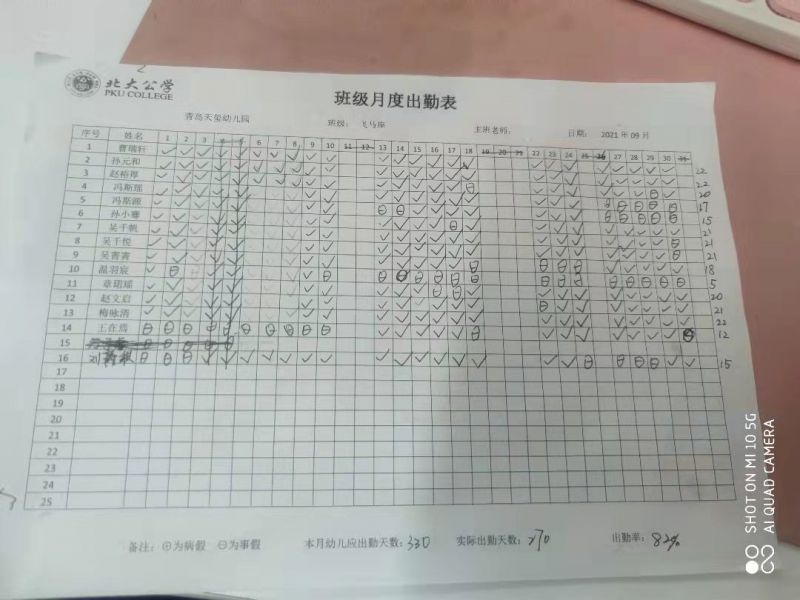 北大公学
PKU COLLEGE
班级月度出勤表
青岛天玺幼儿园 班级: 飞马座 主班老师: 日期: 2021 年 09 月
序号 姓名 1 2 3 4 5 6 7 8 9 10 11 12 13 14 15 16 17 18 19 20 21 22 23 24 25 26 27 28 29 30 31
1 曹瑞轩 22
2 孙元和 22
3 赵裕厚 20
4 冯斯瑶 17
5 冯斯源 15
6 孙小骞 21
7 吴千帆 21
8 吴千悦 21
9 吴菁菁 18
10 温羽宸 5
11 章珺瑶 20
12 赵文启 21
13 梅咏清 22
14 王在焉 12
15
16 15
17
18
19
20
21
22
23
24
25
备注: ⊕为病假 ⊖为事假 本月幼儿应出勤天数: 330 实际出勤天数: 270 出勤率: 82%
SHOT ON MI 10 5G
AI QUAD CAMERA